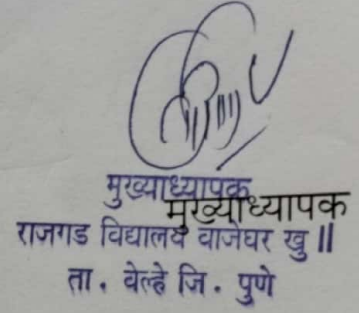 मुख्याध्यापक
मुख्याध्यापक
राजगड विद्यालय वाजेघर खु॥
ता. वेल्हे जि. पुणे